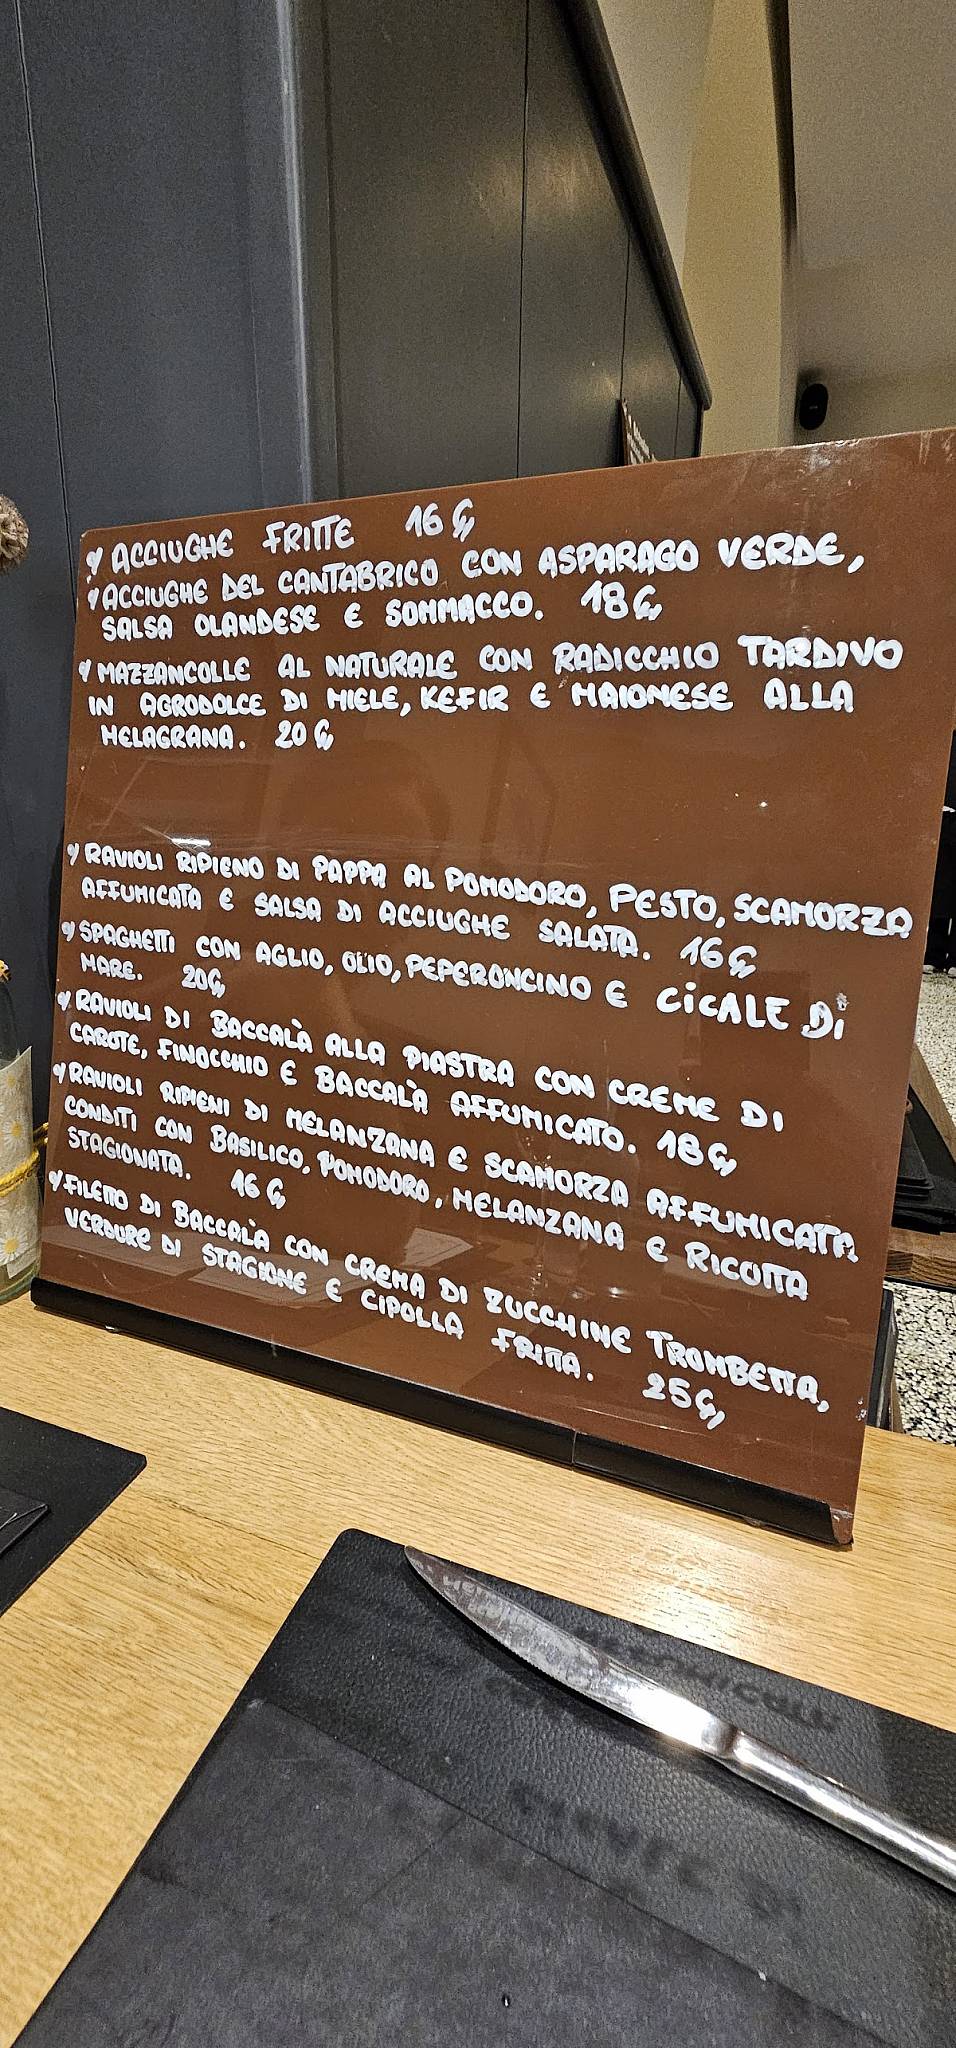 ACCIUGHE FRITTE 16€
ACCIUGHE DEL CANTABRICO CON ASPARAGO VERDE,
SALSA OLANDESE E SOMMACCO. 18€
MAZZANCOLLE AL NATURALE CON RADICCHIO TARDIVO
IN AGRODOLCE DI MIELE, KEFIR E MAIONESE ALLA
MELAGRANA. 20€
RAVIOLI RIPIENO DI PAPPA AL POMODORO, PESTO, SCAMORZA
AFFUMICATA E SALSA DI ACCIUGHE SALATA. 16€
SPAGHETTI CON AGLIO, OLIO, PEPERONCINO E CICALE DI
MARE. 20€
RAVIOLI DI BACCALÀ ALLA PIASTRA CON CREME DI
CAROTE, FINOCCHIO E BACCALÀ AFFUMICATO. 18€
RAVIOLI RIPIENI DI MELANZANA E SCAMORZA AFFUMICATA
CONDITI CON BASILICO, POMODORO, MELANZANA E RICOTTA
STAGIONATA. 16€
FILETTO DI BACCALÀ CON CREMA DI ZUCCHINE TROMBETTA,
VERDURE DI STAGIONE E CIPOLLA FRITTA. 25€